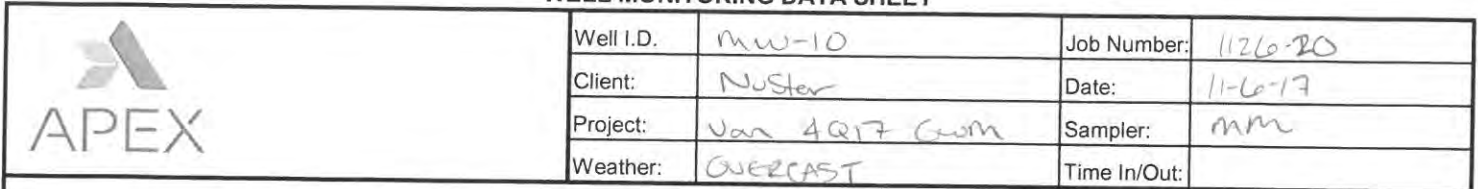 WELL MONITORING DATA SHEET
APEX
Well I.D. MW-10 Job Number: 1126-20
Client: NuStar Date: 11-6-17
Project: Van 4Q17 GWM Sampler: MM
Weather: OVERCAST Time In/Out: